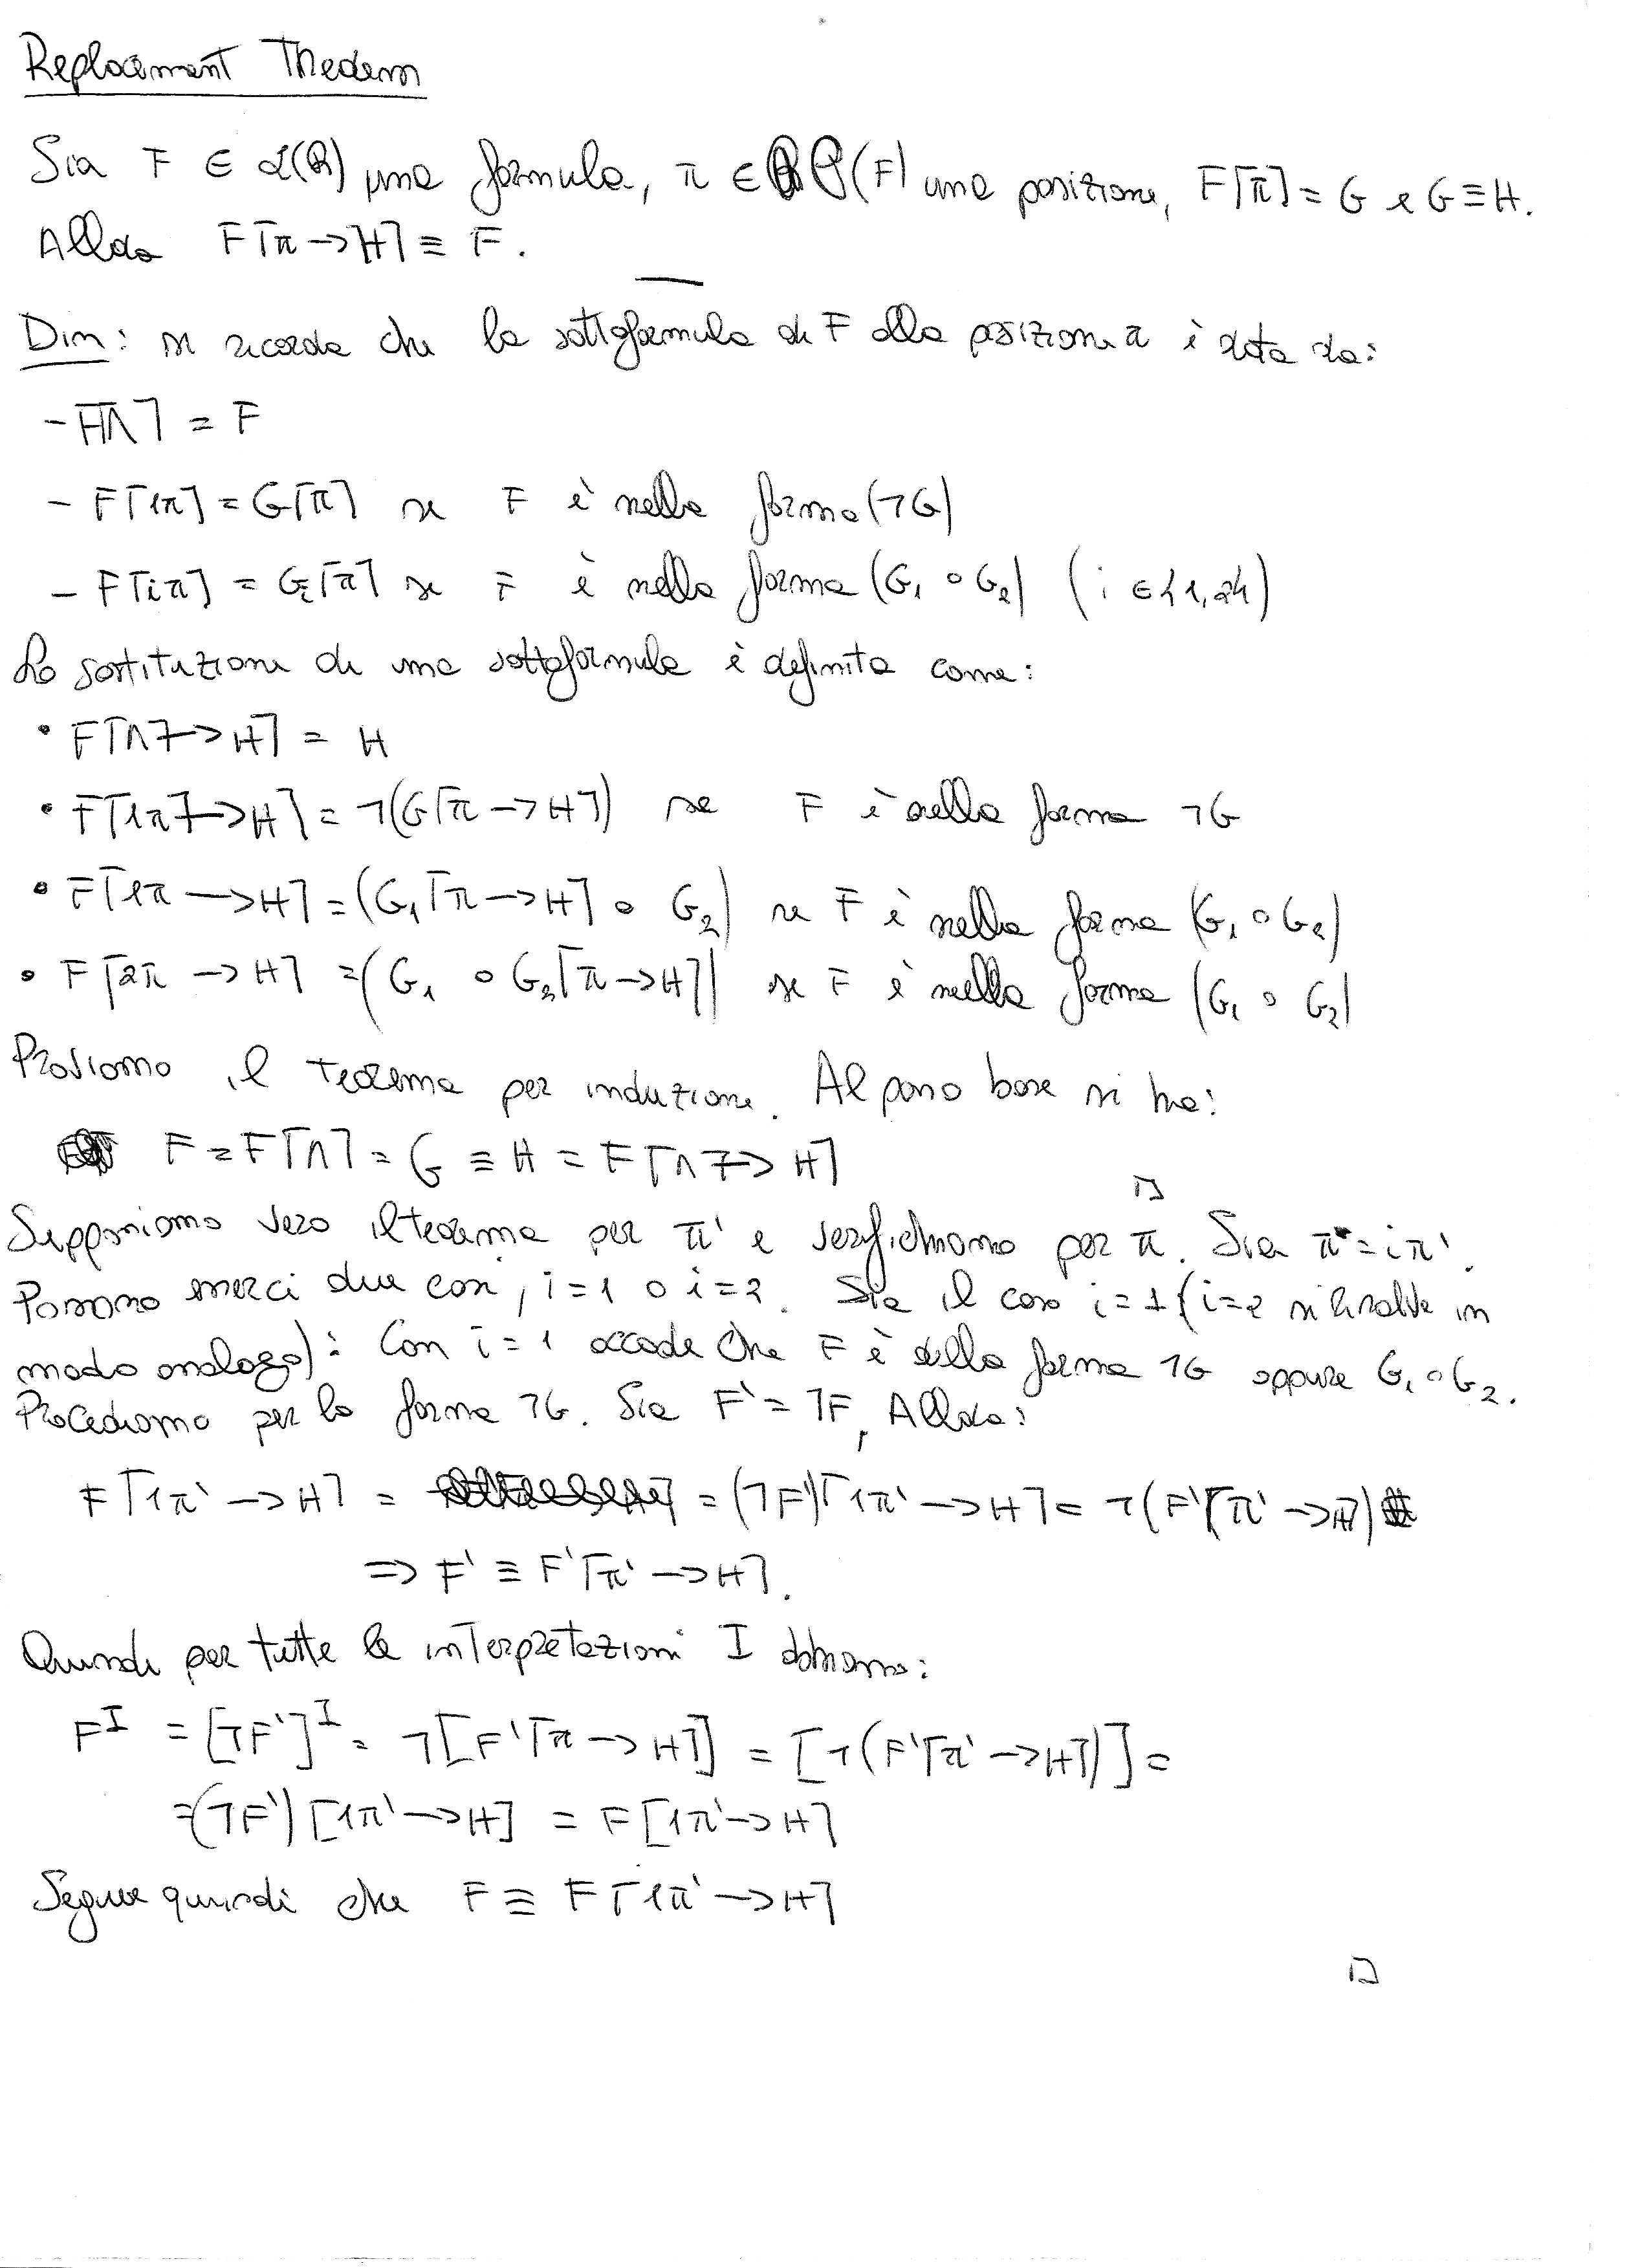 Replacement Theorem
Sia F ∈ L(R) una formula, π ∈ P(F) una posizione, F⌈π⌉ = G e G ≡ H.
Allora F⌈π → H⌉ ≡ F.
Dim: si ricorda che la sottoformula di F alla posizione π è data da:
- F⌈Λ⌉ = F
- F⌈1π⌉ = G⌈π⌉ se F è nella forma (¬G)
- F⌈iπ⌉ = Gi⌈π⌉ se F è nella forma (G₁ ∘ G₂) (i ∈ {1,2})
La sostituzione di una sottoformula è definita come:
• F⌈Λ ↦ H⌉ = H
• F⌈1π ↦ H⌉ = ¬(G⌈π → H⌉) se F è nella forma ¬G
• F⌈1π → H⌉ = (G₁⌈π → H⌉ ∘ G₂) se F è nella forma (G₁ ∘ G₂)
• F⌈2π → H⌉ = (G₁ ∘ G₂⌈π → H⌉) se F è nella forma (G₁ ∘ G₂)
Proviamo il teorema per induzione. Al passo base si ha:
F = F⌈Λ⌉ = G ≡ H = F⌈Λ ↦ H⌉
□
Supponiamo vero il teorema per π' e verifichiamo per π. Sia π = iπ'.
Possono esserci due casi, i = 1 o i = 2. Sia il caso i = 1 (i = 2 si risolve in
modo analogo): Con i = 1 accade che F è della forma ¬G oppure G₁ ∘ G₂.
Procediamo per la forma ¬G. Sia F' = ¬F, Allora:
F⌈1π' → H⌉ = = (¬F')⌈1π' → H⌉ = ¬(F'⌈π' → H⌉)
=> F' ≡ F'⌈π' → H⌉.
Quindi per tutte le interpretazioni I abbiamo:
F^I = [¬F']^I = ¬[F'⌈π → H⌉] = [¬(F'⌈π' → H⌉)] =
= (¬F')[1π' → H] = F[1π' → H]
Segue quindi che F ≡ F⌈1π' → H⌉
□